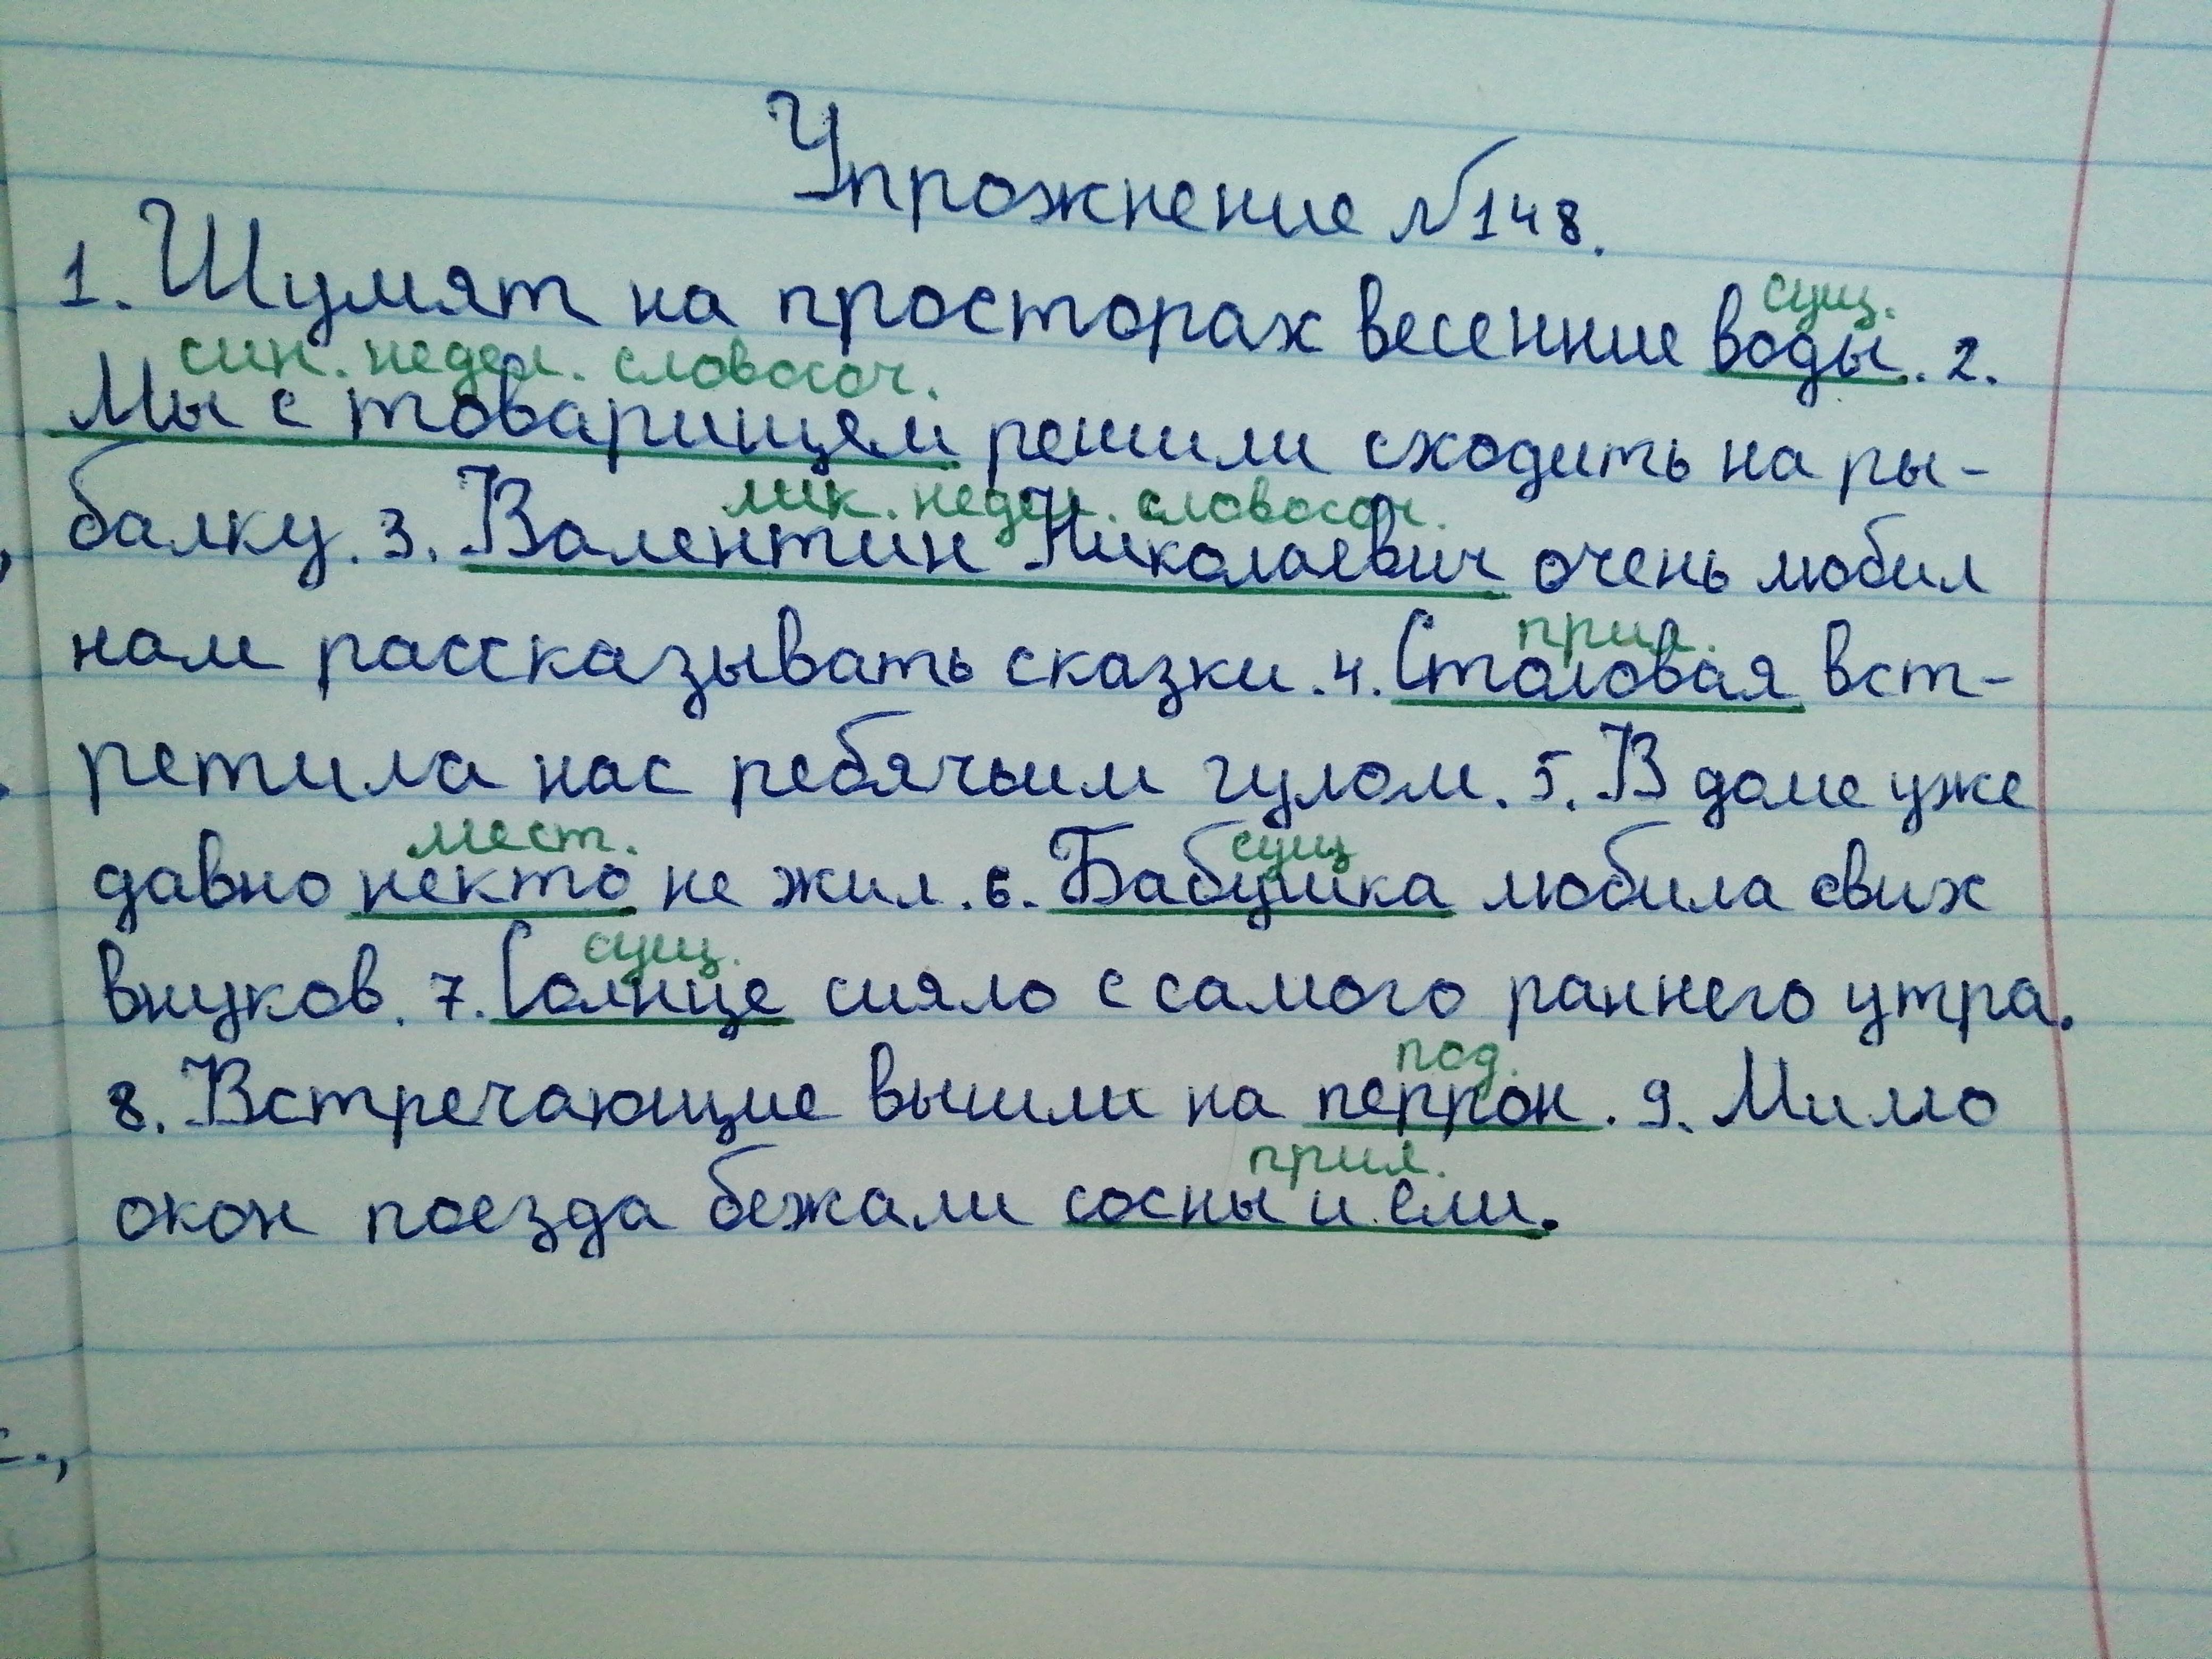 Упрожнение №148.
сущ.
1. Шумят на просторах весенние воды. 2.
син. недел. словосоч.
Мы с товарищем решили сходить на ры-
лик. недел. словосоч.
балку. 3. Валентин Николаевич очень любил
прил.
нам рассказывать сказки. 4. Столовая вст-
ретила нас ребячьим гулом. 5. В доме уже
мест. сущ
давно некто не жил. 6. Бабушка любила свих
сущ.
внуков. 7. Солнце сияло с самого раннего утра.
под.
8. Встречающие вышли на перрон. 9. Мимо
прил.
окон поезда бежали сосны и ели.